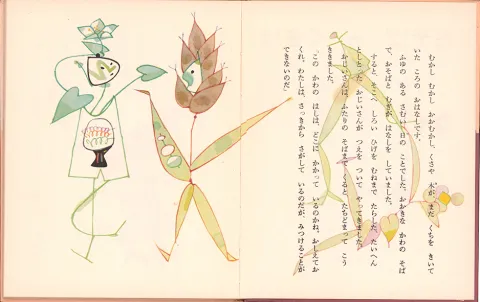 むかし むかし おおむかし、くさや 木が まだ くちを きいて
いた ころの おはなしです。
ふゆの ある さむい 日の ことでした。おおきな かわの そば
で、おそばと むぎが はなしを して いました。
すると、そこへ しろい ひげを むねまで たらした、たいへん
としとった おじいさんが つえを ついて やってきました。
おじいさんは、ふたりの そばまで くると、たちどまって こう
ききました。
「この かわの はしは、どこに かかって いるのかね。おしえてお
くれ。わたしは、さっきから さがして いるのだが、みつけることが
できないのだ」